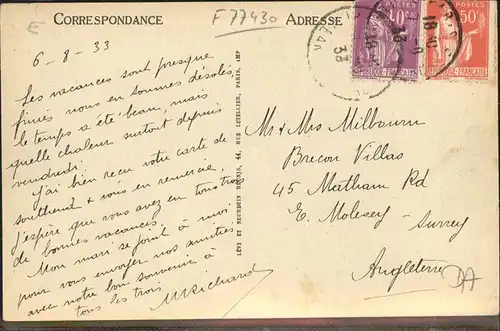 CORRESPONDANCE
F 77430
ADRESSE
E
6-8-33
Les vacances sont presque
finies nous en sommes désolés,
le temps a été beau, mais
quelle chaleur surtout depuis
vendredi.
j'ai bien reçu votre carte de
southend & vous en remercie,
j'espère que vous avez eu tous trois
de bonnes vacances.
Mon mari se joint à moi
pour vous envoyer nos amitiés
avec notre bon souvenir à
tous les trois
MRichard
LÉVY ET NEURDEIN RÉUNIS, 44, RUE LETELLIER, PARIS, IMP
POSTES
40c
POSTES
50c
33
18
Mr & Mrs Milbourn
Brecon Villas
45 Matham Rd
E. Molesey - Surrey
Angleterre
DA